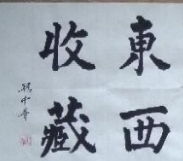 東西
收藏